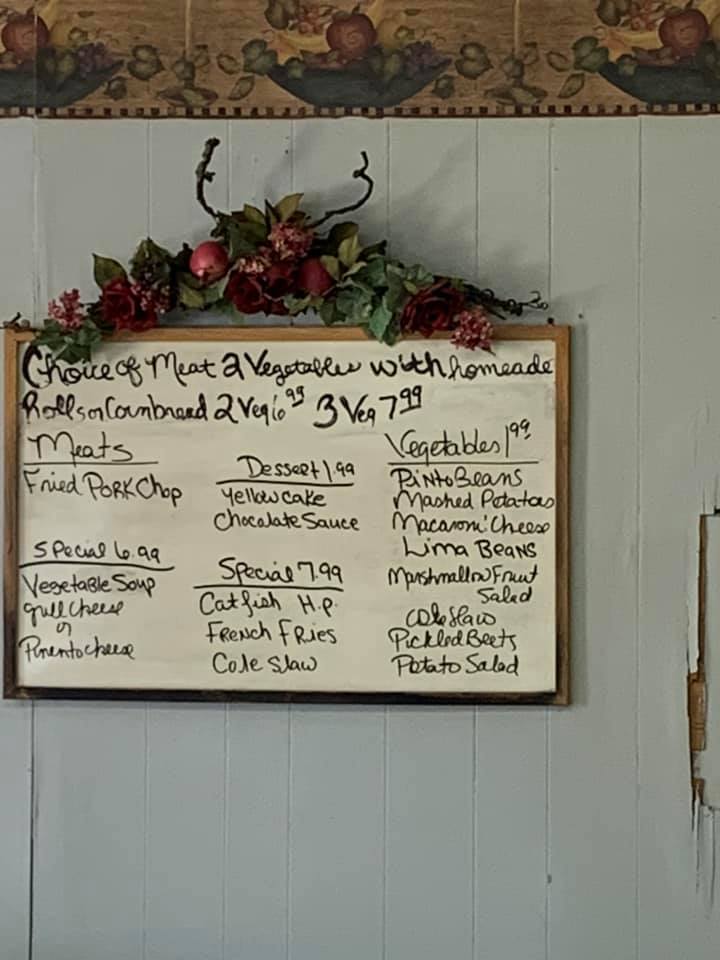 Choice of Meat 2 Vegetables with homeade
Rolls or Cornbread 2 Veg 6.99 3 Veg 7.99
Meats
Fried Pork Chop
Special 6.99
Vegetable Soup
grill cheese
or
Pimento cheese
Dessert 1.99
Yellow cake
Chocalate Sauce
Special 7.99
Catfish H.p.
French Fries
Cole Slaw
Vegetables 1.99
Pinto Beans
Mashed Potatoes
Macaroni Cheese
Lima Beans
Marshmallow Fruit
Salad
Cole slaw
Pickled Beets
Potato Salad